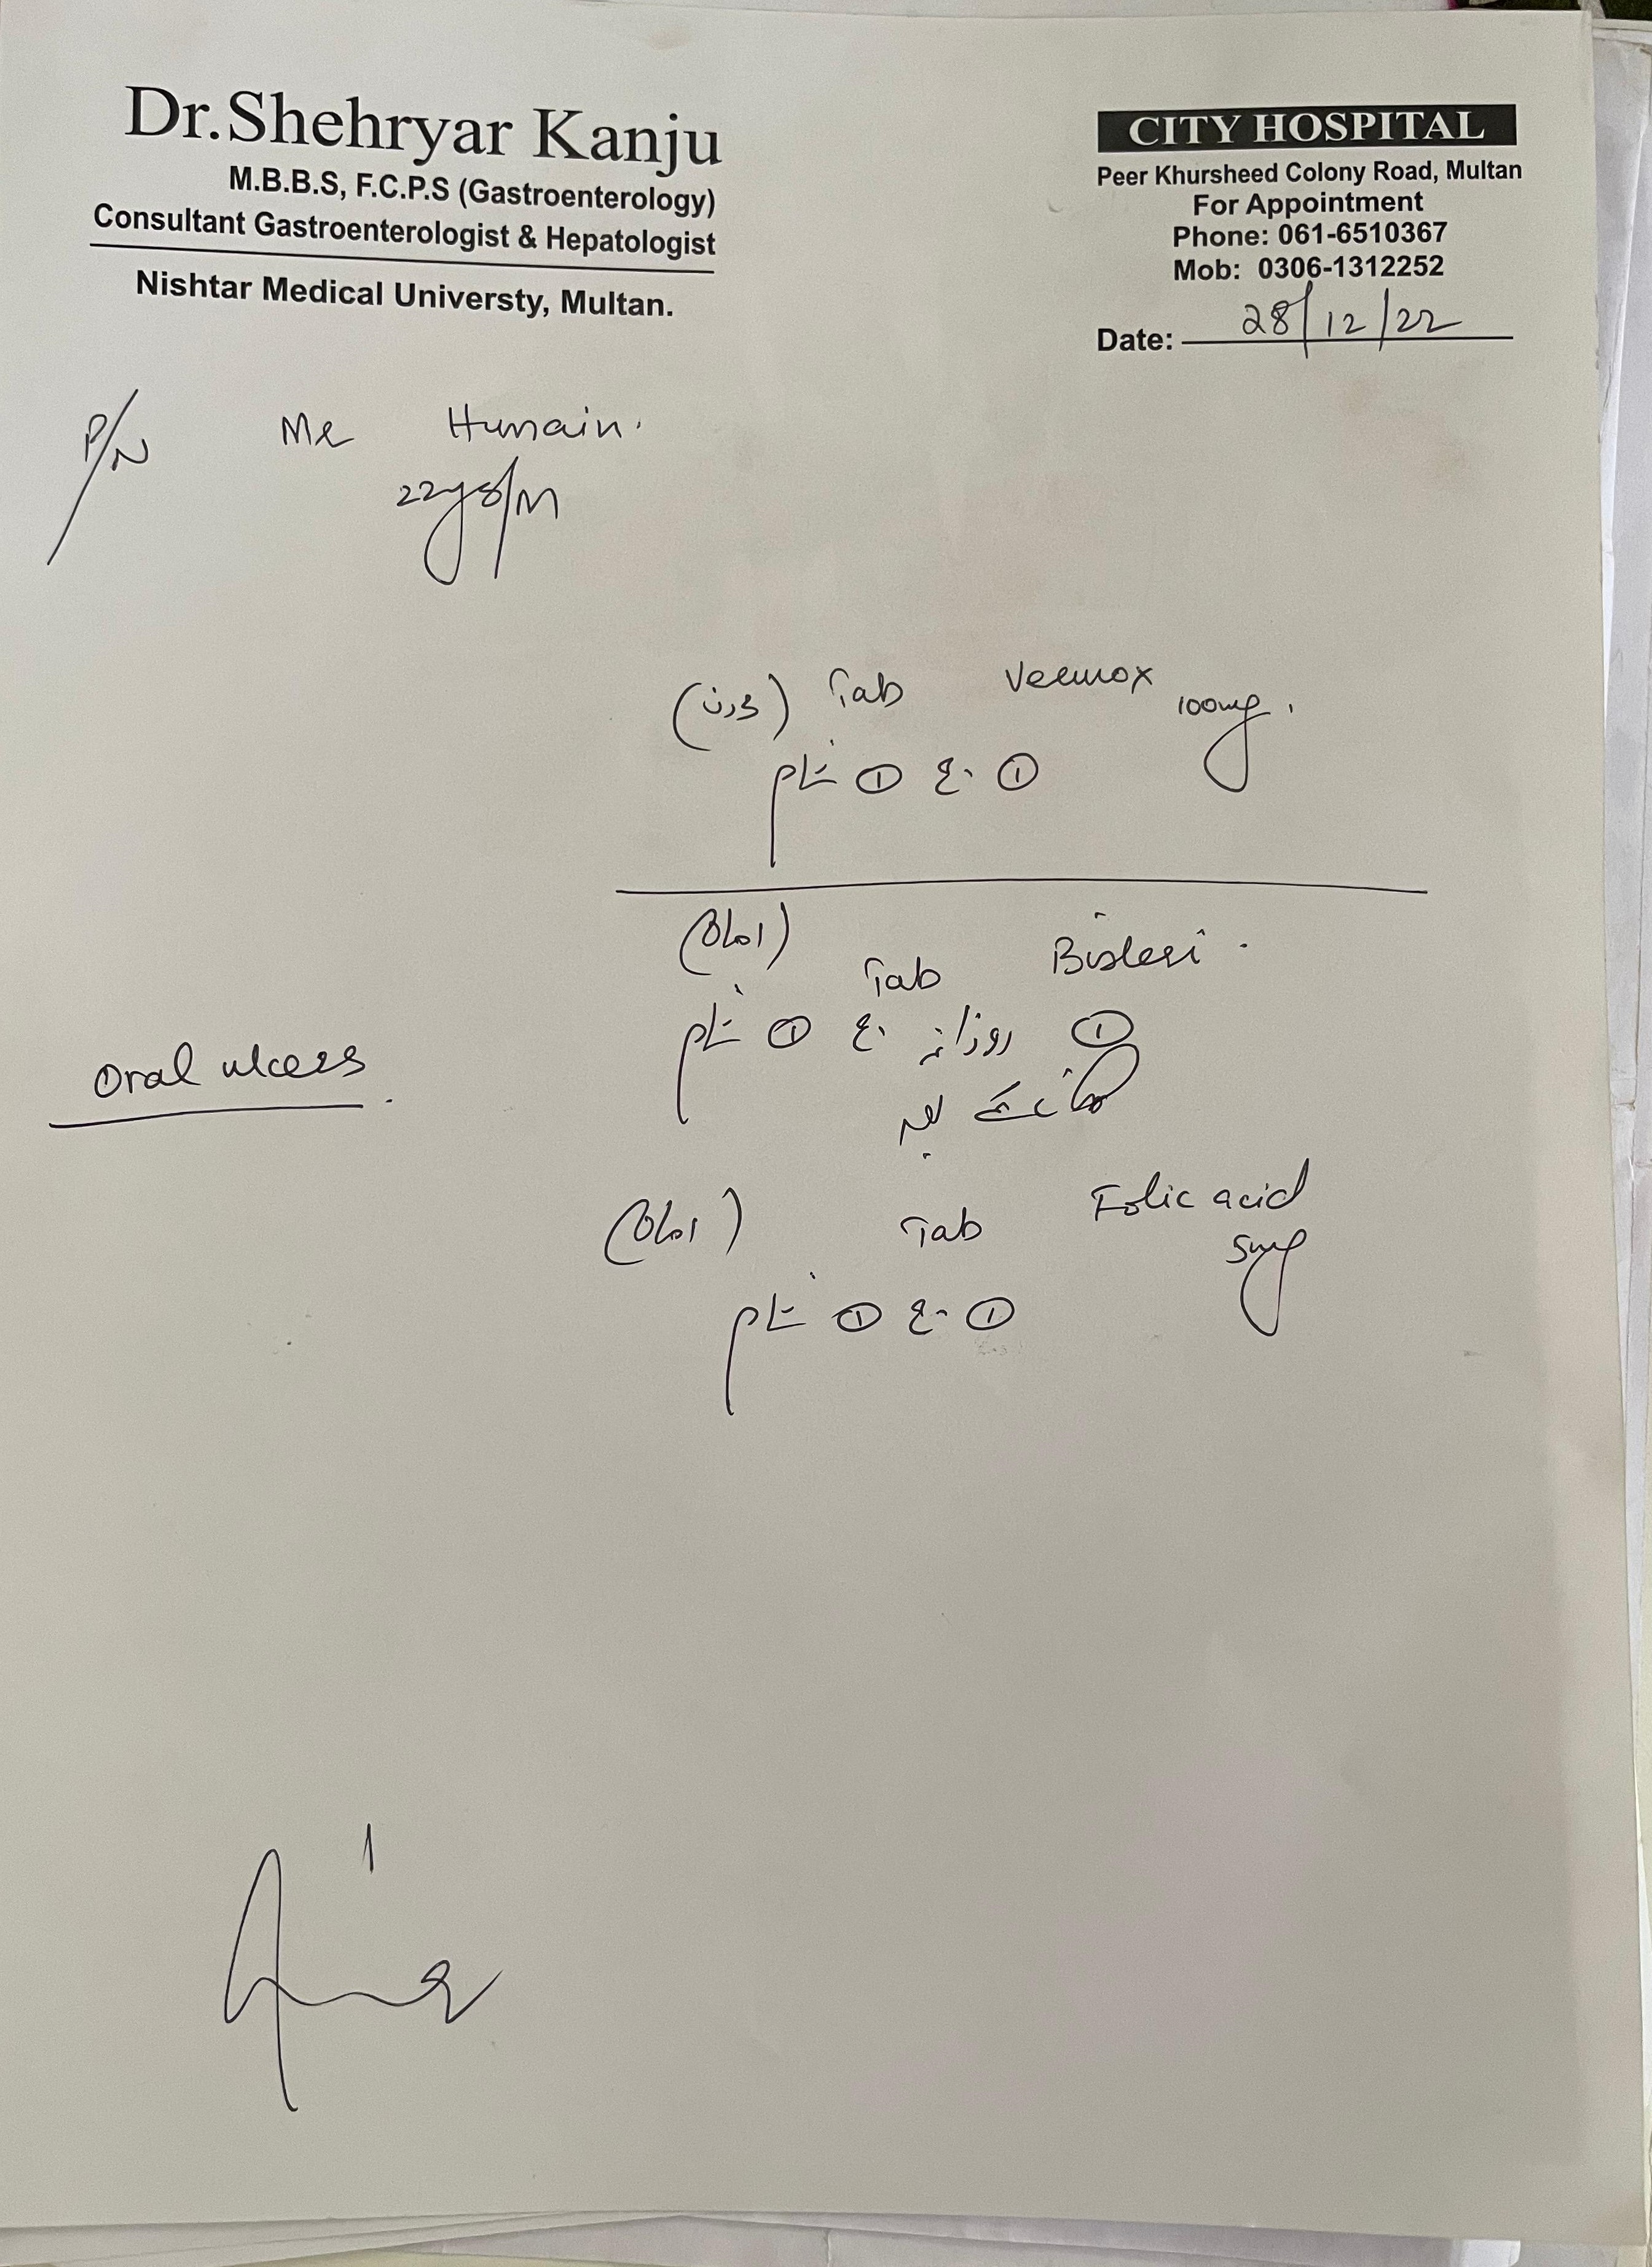 Dr.Shehryar Kanju
M.B.B.S, F.C.P.S (Gastroenterology)
Consultant Gastroenterologist & Hepatologist
Nishtar Medical Universty, Multan.
CITY HOSPITAL
Peer Khursheed Colony Road, Multan
For Appointment
Phone: 061-6510367
Mob: 0306-1312252
Date: 28/12/22
P/N Mr Hunain.
22yrs/M
(3دن) Tab Vermox 100mg.
① صبح ① شام
(1ماہ)
Tab Bisleri.
① روزانہ صبح ① شام
کھانے کے بعد
Oral ulcers.
(1ماہ) Tab Folic acid
5mg
① صبح ① شام